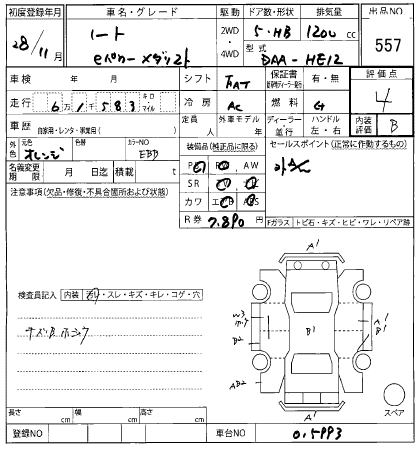 初度登録年月 車名・グレード 駆動 ドア数・形状 排気量 出品NO
28/11月 ノート 2WD 5・HB 1200cc 557
eパワー メダリスト 4WD 型式 DAA-HE12
車検 年 月 シフト FAT 保証書 有・無 評価点
走行 6万1千583 キロ マイル 冷房 AC 燃料 G 4
車歴 自家用・レンタ・事業用( ) 外車モデル 年 ディーラー・並行 ハンドル 左・右 内装評価 B
外色 元色 オレンジ 色替 カラーNO EBB 装備品(純正品に限る) セールスポイント(正常に作動するもの)
名義変更期限 月 日迄 積載 t AW
SR
注意事項(欠品・修復・不具合箇所および状態) カワ
R券 7,890円 Fガラス トビ石・キズ・ヒビ・ワレ・リペア跡
A1
検査員記入 内装 汚れ・スレ・キズ・キレ・コゲ・穴
W3 A1
B2 B1 B1
AB2
A1
スペア
長さ cm 幅 cm 高さ cm
登録NO 車台NO 015993